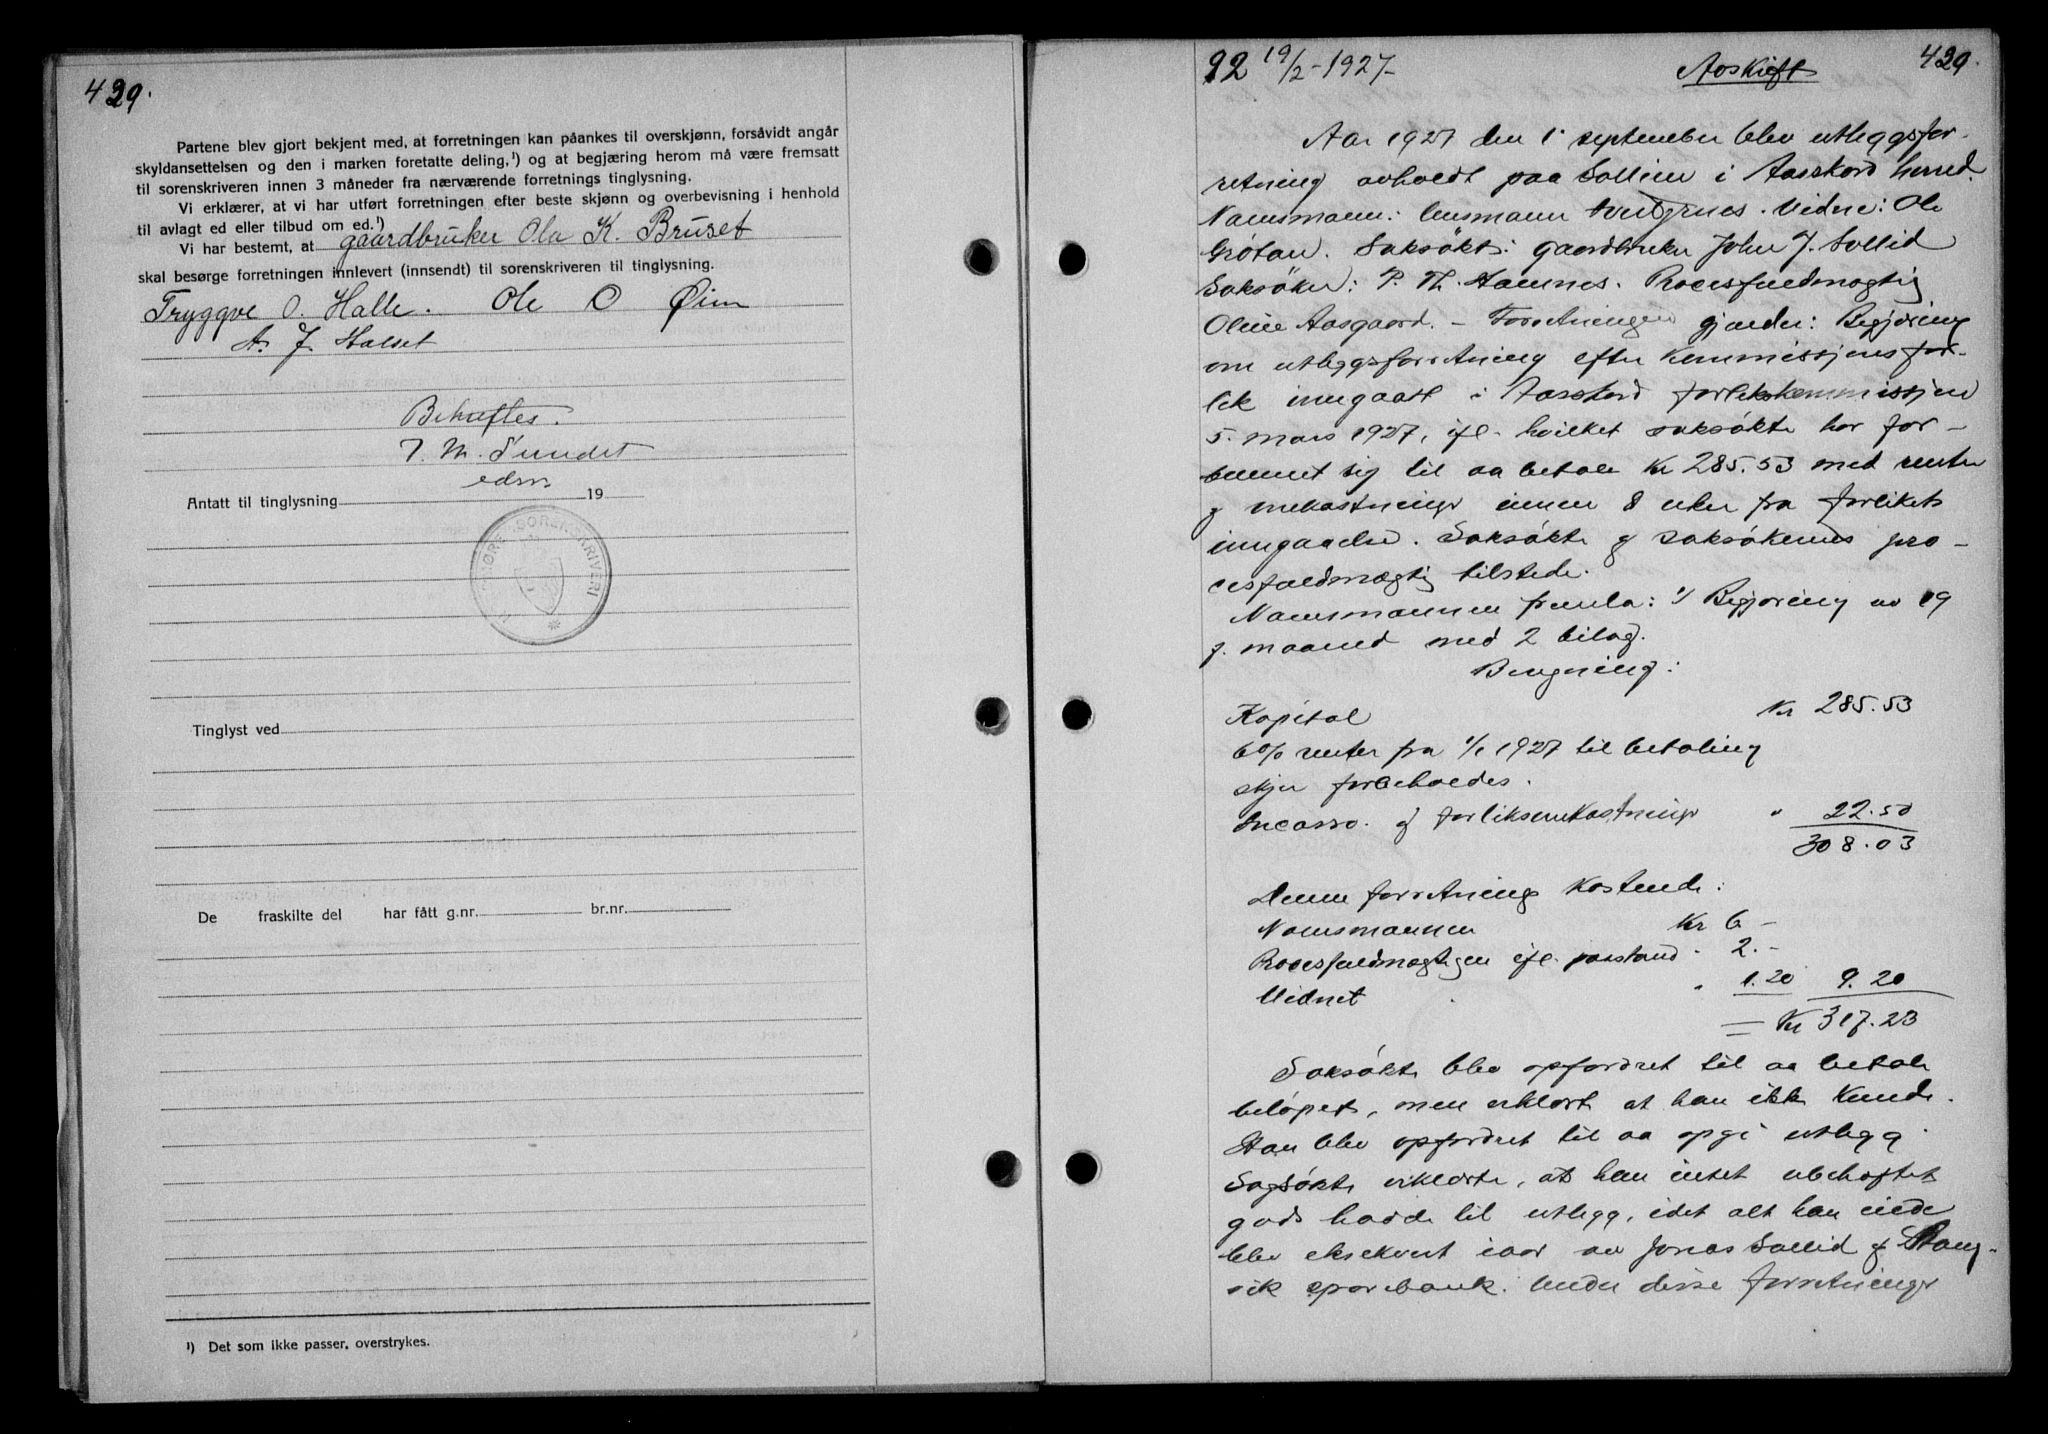 429.
Partene blev gjort bekjent med, at forretningen kan påankes til overskjønn, forsåvidt angår
skyldansettelsen og den i marken foretatte deling,¹) og at begjæring herom må være fremsatt
til sorenskriveren innen 3 måneder fra nærværende forretnings tinglysning.
Vi erklærer, at vi har utført forretningen efter beste skjønn og overbevisning i henhold
til avlagt ed eller tilbud om ed.¹)
Vi har bestemt, at gaardbruker Ola K. Bruset
skal besørge forretningen innlevert (innsendt) til sorenskriveren til tinglysning.
Tryggve O. Halle. Ole O Øim
A. J. Halset
Bekræftes.
J. M. Sundet
edsv.
Antatt til tinglysning 19
SORENSKRIVERI
Tinglyst ved
De fraskilte del har fått g.nr. br.nr.
¹) Det som ikke passer, overstrykes.
92 19/2-1927- Avskrift 429.
Aar 1927 den 1. september blev utleggsfor-
retning avholdt paa Sollien i Aasskard herred.
Namsmann: lensmann Tveitgjenes. Vidne: Ole
Grötan. Saksökt: gaardbruker John J. Sollid
Saksöker: P. Th. Hamnes. Procesfuldmægtig
Oline Aasgaard. - Forretningen gjælder: Begjæring
om utleggsforretning efter kommissjonsfor-
lik inngaatt i Aasskard forlikskommissjon
5. mars 1927, ifl. hvilket saksökte har for-
bunnet sig til aa betale Kr 285.53 med renter
og omkostninger innen 8 uker fra forlikets
inngaaelse. Saksökte og saksökernes pro-
cesfuldmægtig tilstede.
Namsmannen fremla: 1/ Begjæring av 19
f. maaned med 2 bilag.
Beregning:
Kapital Kr 285.53
6% renter fra 1/1 1927 til betaling
skjer forbeholdes.
Incasso. og forliksomkostninger " 22.50
308.03
Denne forretnings kostende:
Namsmannen Kr 6 -
Procesfuldmægtigen ifl. paastand " 2.-
Vidnet " 1.20 9.20
= Kr 317.23
Saksökte blev opfordret til aa betale
belöpet, men erklært at han ikke kunde.
Han blev opfordret til aa opgi utlegg
Sagsökte erklærte, at han intet ubeheftet
gods hadde til utlegg, idet alt han eide
blev eksekvert iaar av Jonas Sollid og Stang-
vik sparebank. Under disse forretninger